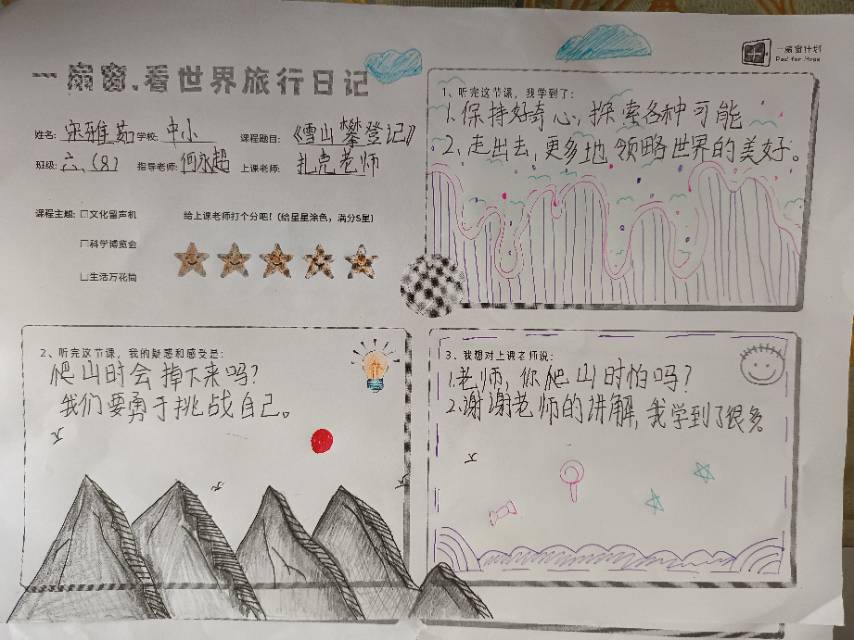 一扇窗,看世界旅行日记
一扇窗计划
Pad for Hope
姓名: 宋雅茹 学校: 中小 课程题目: 《雪山攀登记》
班级: 六、(8) 指导老师: 何永超 上课老师: 扎克老师
课程主题: 口文化留声机
给上课老师打个分吧!(给星星涂色,满分5星)
口科学博览会
口生活万花筒
1、听完这节课,我学到了:
1.保持好奇心,探索各种可能
2、走出去,更多地领略世界的美好。
2、听完这节课,我的疑惑和感受是:
爬山时会掉下来吗?
我们要勇于挑战自己。
3、我想对上课老师说:
1.老师,你爬山时怕吗?
2.谢谢老师的讲解,我学到了很多。